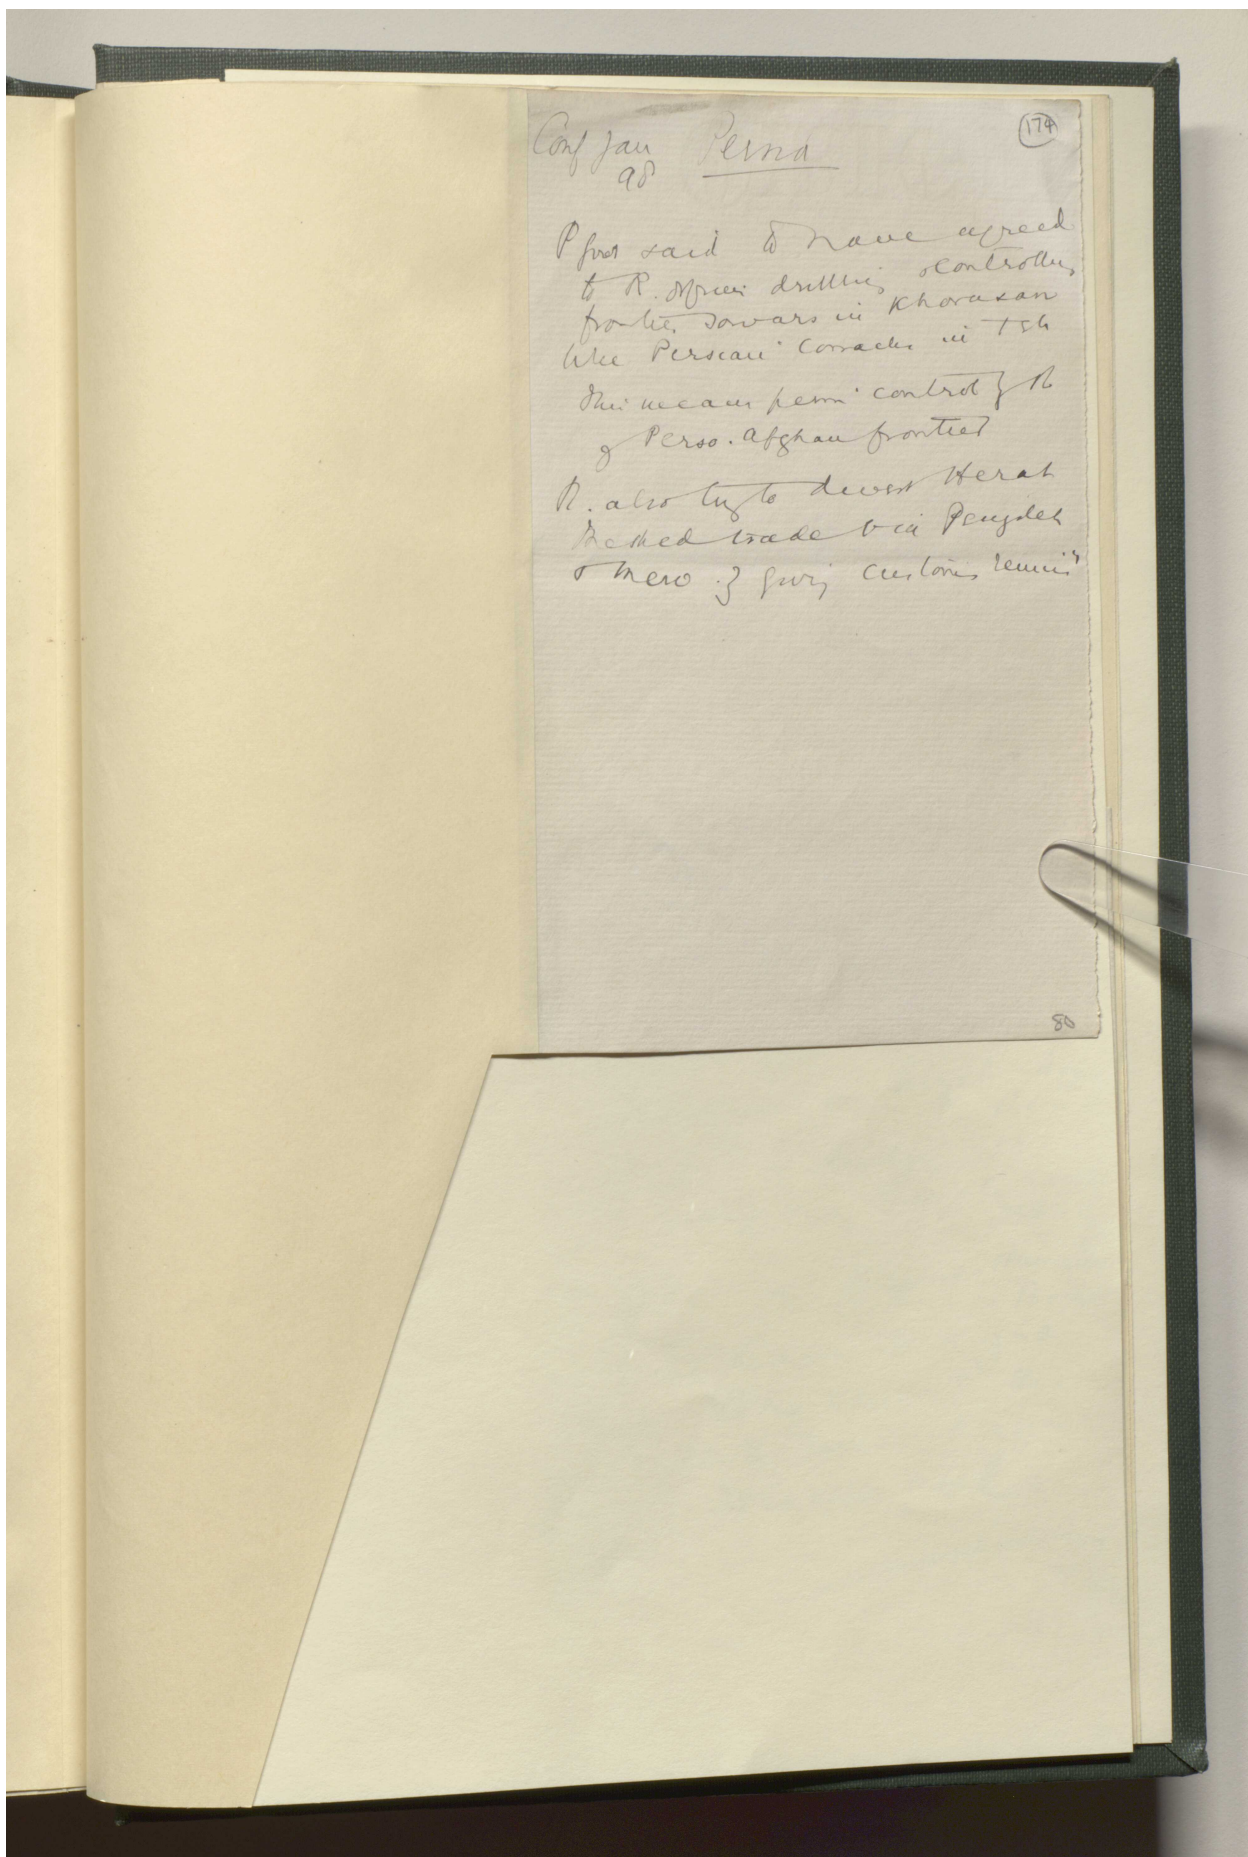 174
Conf Jan Persia
98
P govt said to have agreed
to R. officers drilling & controlling
frontier sowars in Khorasan
like Persian Cossacks in Teh
This means perm. control of R
of Perso. Afghan frontier
R. also try to divert Herat
Meshed trade via Penjdeh
& Merv by giving customs remiss
80